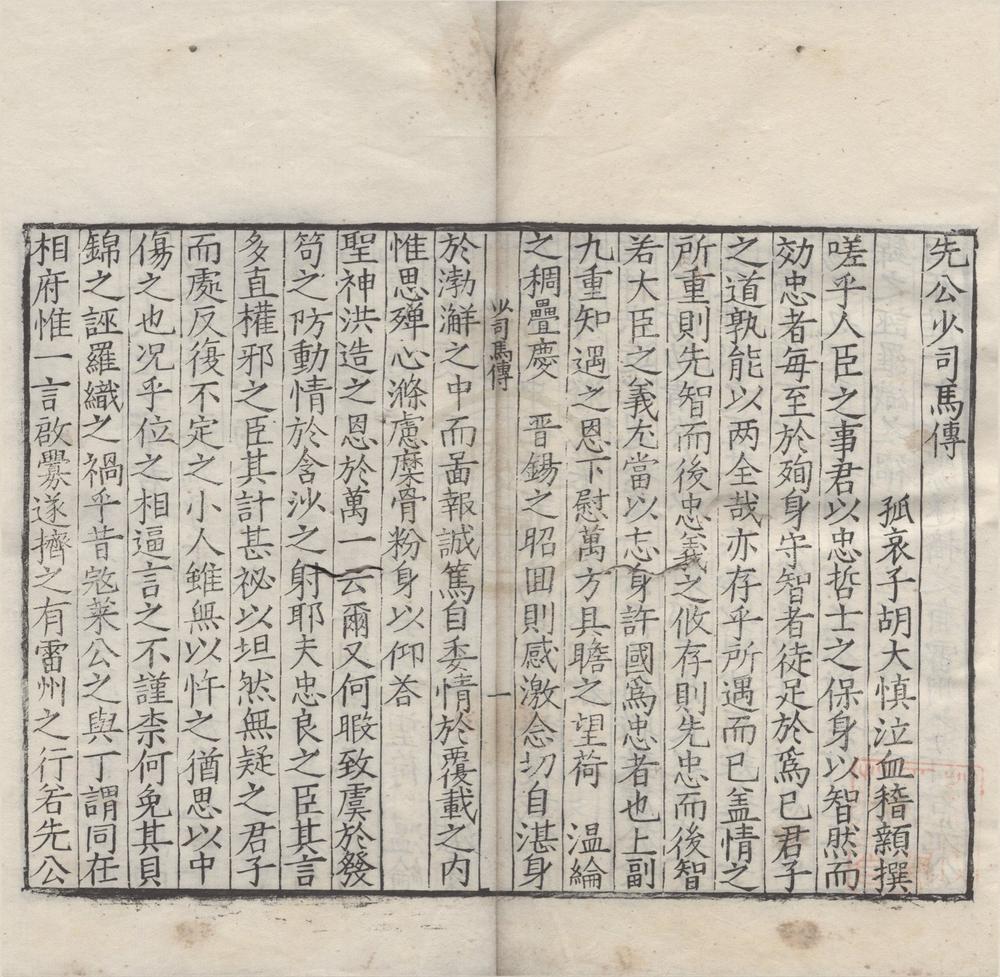 先公少司馬傳
孤哀子胡大慎泣血稽顙撰
嗟乎人臣之事君以忠哲士之保身以智然而
効忠者每至於殉身守智者徒足於爲已君子
之道孰能以两全哉亦存乎所遇而已盖情之
所重則先智而後忠義之攸存則先忠而後智
若大臣之義尤當以忘身許國爲忠者也上副
九重知遇之恩下慰萬方具瞻之望荷 温綸
之稠疊慶 晋錫之昭囬則感激念切自湛身
少司馬傳 一
於渤澥之中而啚報誠篤自委情於覆載之内
惟思殫心滌慮糜骨粉身以仰荅
聖神洪造之恩於萬一云爾又何暇致虞於發
笱之防動情於含沙之射耶夫忠良之臣其言
多直權邪之臣其計甚祕以坦然無疑之君子
而處反復不定之小人雖無以忤之猶思以中
傷之也况乎位之相逼言之不謹柰何免其貝
錦之誣羅織之禍乎昔宼萊公之與丁謂同在
相府惟一言啟釁遂擠之有雷州之行若先公